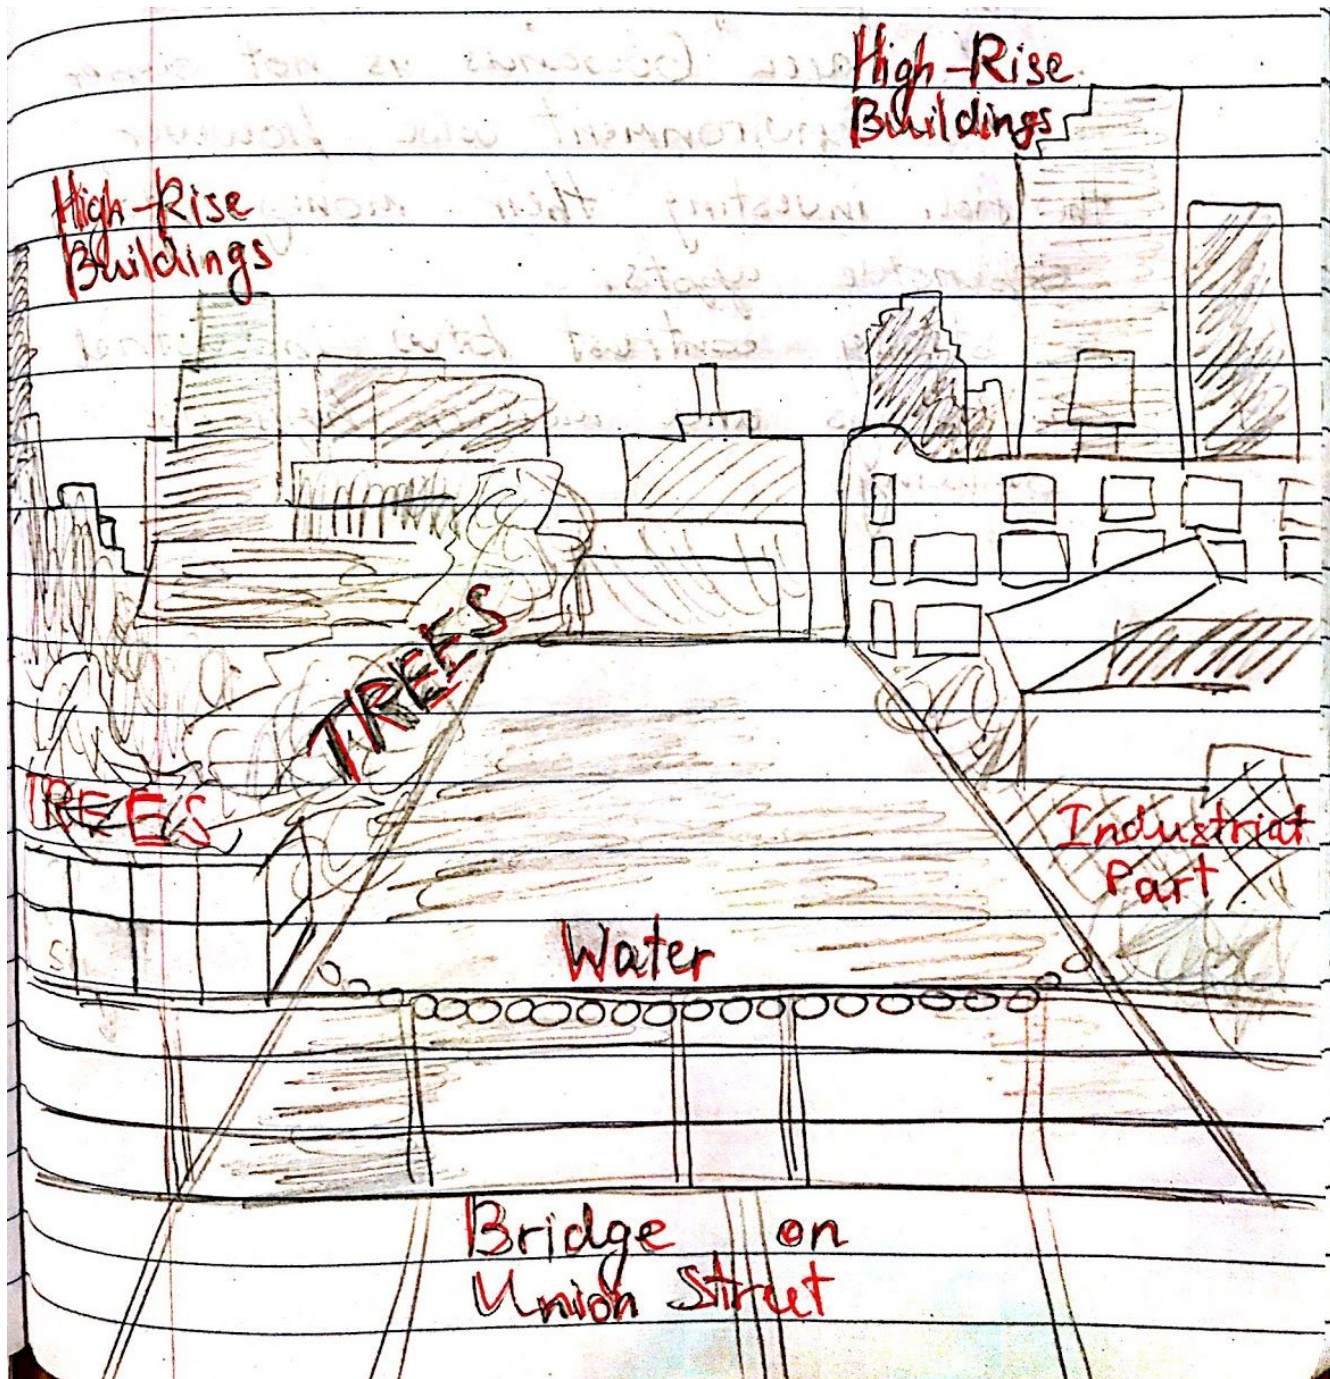 High-Rise
Buildings
High-Rise
Buildings
TREES
TREES
Industrial
Part
Water
Bridge on
Union Street